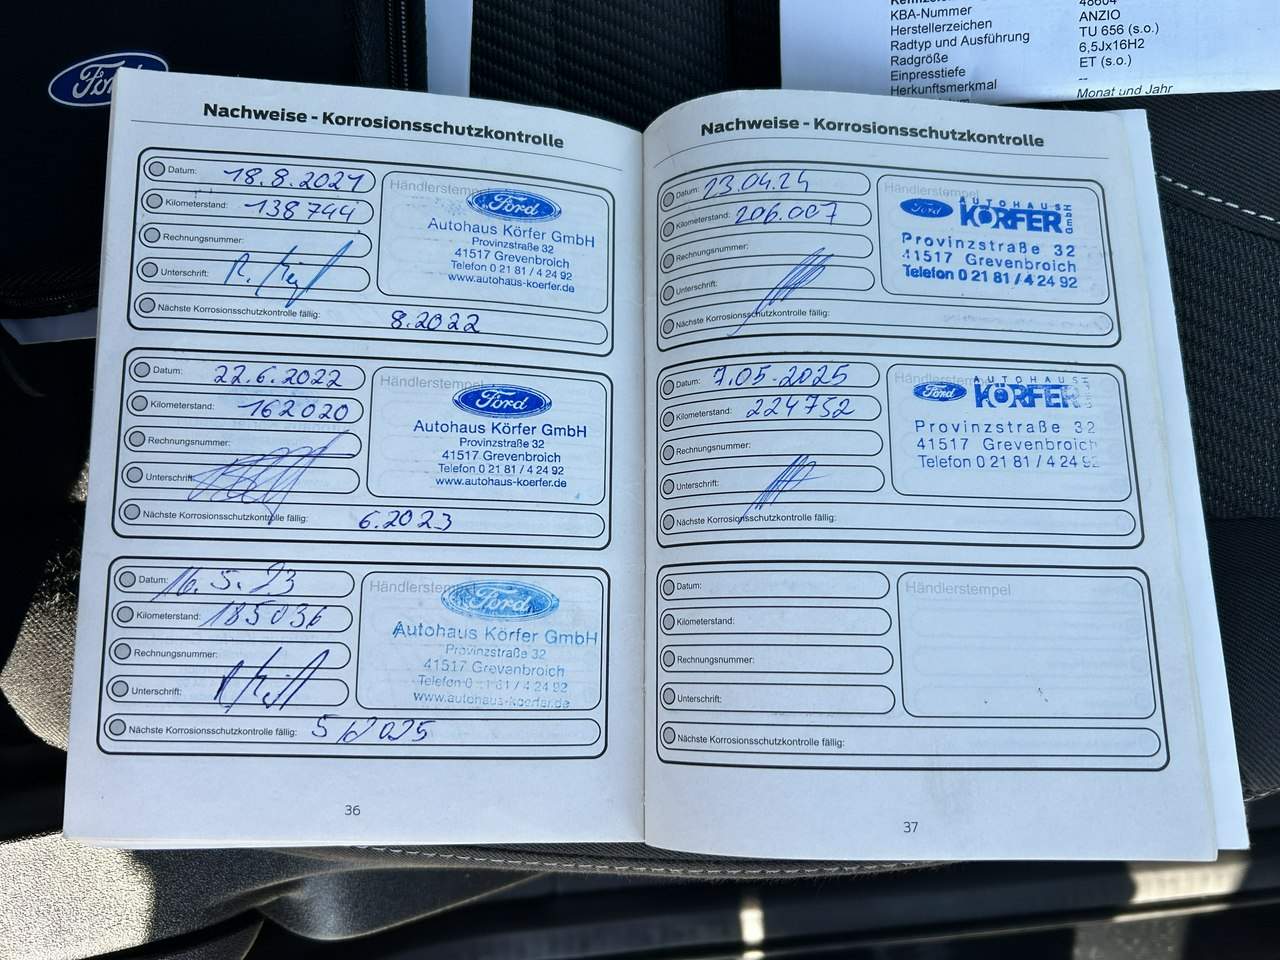 Ford
48604
KBA-Nummer ANZIO
Herstellerzeichen TU 656 (s.o.)
Radtyp und Ausführung 6,5Jx16H2
Radgröße ET (s.o.)
Einpresstiefe --
Herkunftsmerkmal Monat und Jahr
Nachweise - Korrosionsschutzkontrolle
Datum: 18.8.2021
Kilometerstand: 138744
Rechnungsnummer:
Unterschrift:
Nächste Korrosionsschutzkontrolle fällig: 8.2022
Händlerstempel
Ford
Autohaus Körfer GmbH
Provinzstraße 32
41517 Grevenbroich
Telefon 0 21 81 / 4 24 92
www.autohaus-koerfer.de
Datum: 22.6.2022
Kilometerstand: 162020
Rechnungsnummer:
Unterschrift:
Nächste Korrosionsschutzkontrolle fällig: 6.2023
Händlerstempel
Ford
Autohaus Körfer GmbH
Provinzstraße 32
41517 Grevenbroich
Telefon 0 21 81 / 4 24 92
www.autohaus-koerfer.de
Datum: 16.5.23
Kilometerstand: 185036
Rechnungsnummer:
Unterschrift:
Nächste Korrosionsschutzkontrolle fällig: 5/2025
Händlerstempel
Ford
Autohaus Körfer GmbH
Provinzstraße 32
41517 Grevenbroich
Telefon 0 21 81 / 4 24 92
www.autohaus-koerfer.de
36
Nachweise - Korrosionsschutzkontrolle
Datum: 23.04.24
Kilometerstand: 206.007
Rechnungsnummer:
Unterschrift:
Nächste Korrosionsschutzkontrolle fällig:
Händlerstempel
Ford AUTOHAUS
KÖRFER GMBH
Provinzstraße 32
41517 Grevenbroich
Telefon 0 21 81 / 4 24 92
Datum: 7.05.2025
Kilometerstand: 224752
Rechnungsnummer:
Unterschrift:
Nächste Korrosionsschutzkontrolle fällig:
Händlerstempel
Ford AUTOHAUS
KÖRFER
Provinzstraße 32
41517 Grevenbroich
Telefon 0 21 81 / 4 24 92
Datum:
Kilometerstand:
Rechnungsnummer:
Unterschrift:
Nächste Korrosionsschutzkontrolle fällig:
Händlerstempel
37